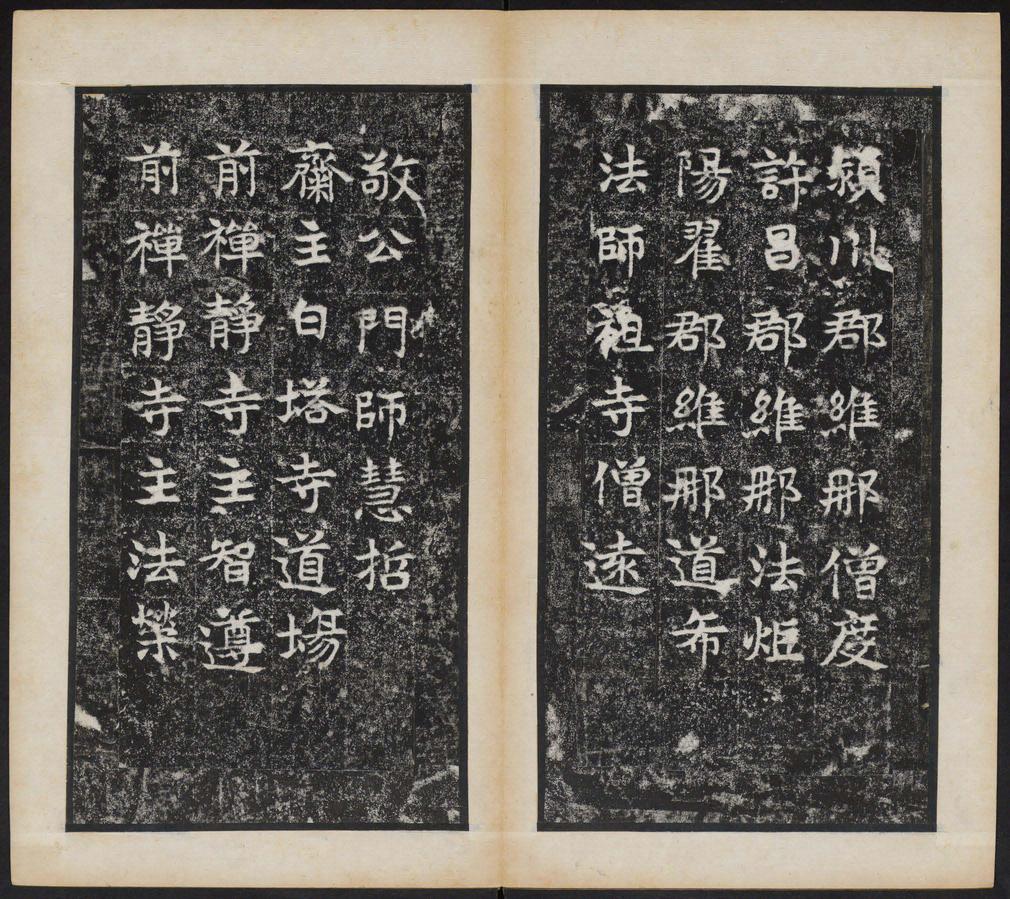 潁川郡維那僧度
許昌郡維那法炬
陽翟郡維那道希
法師祖寺僧遠
敬公門師慧哲
齋主白塔寺道場
前禪静寺主智遵
前禪静寺主法榮